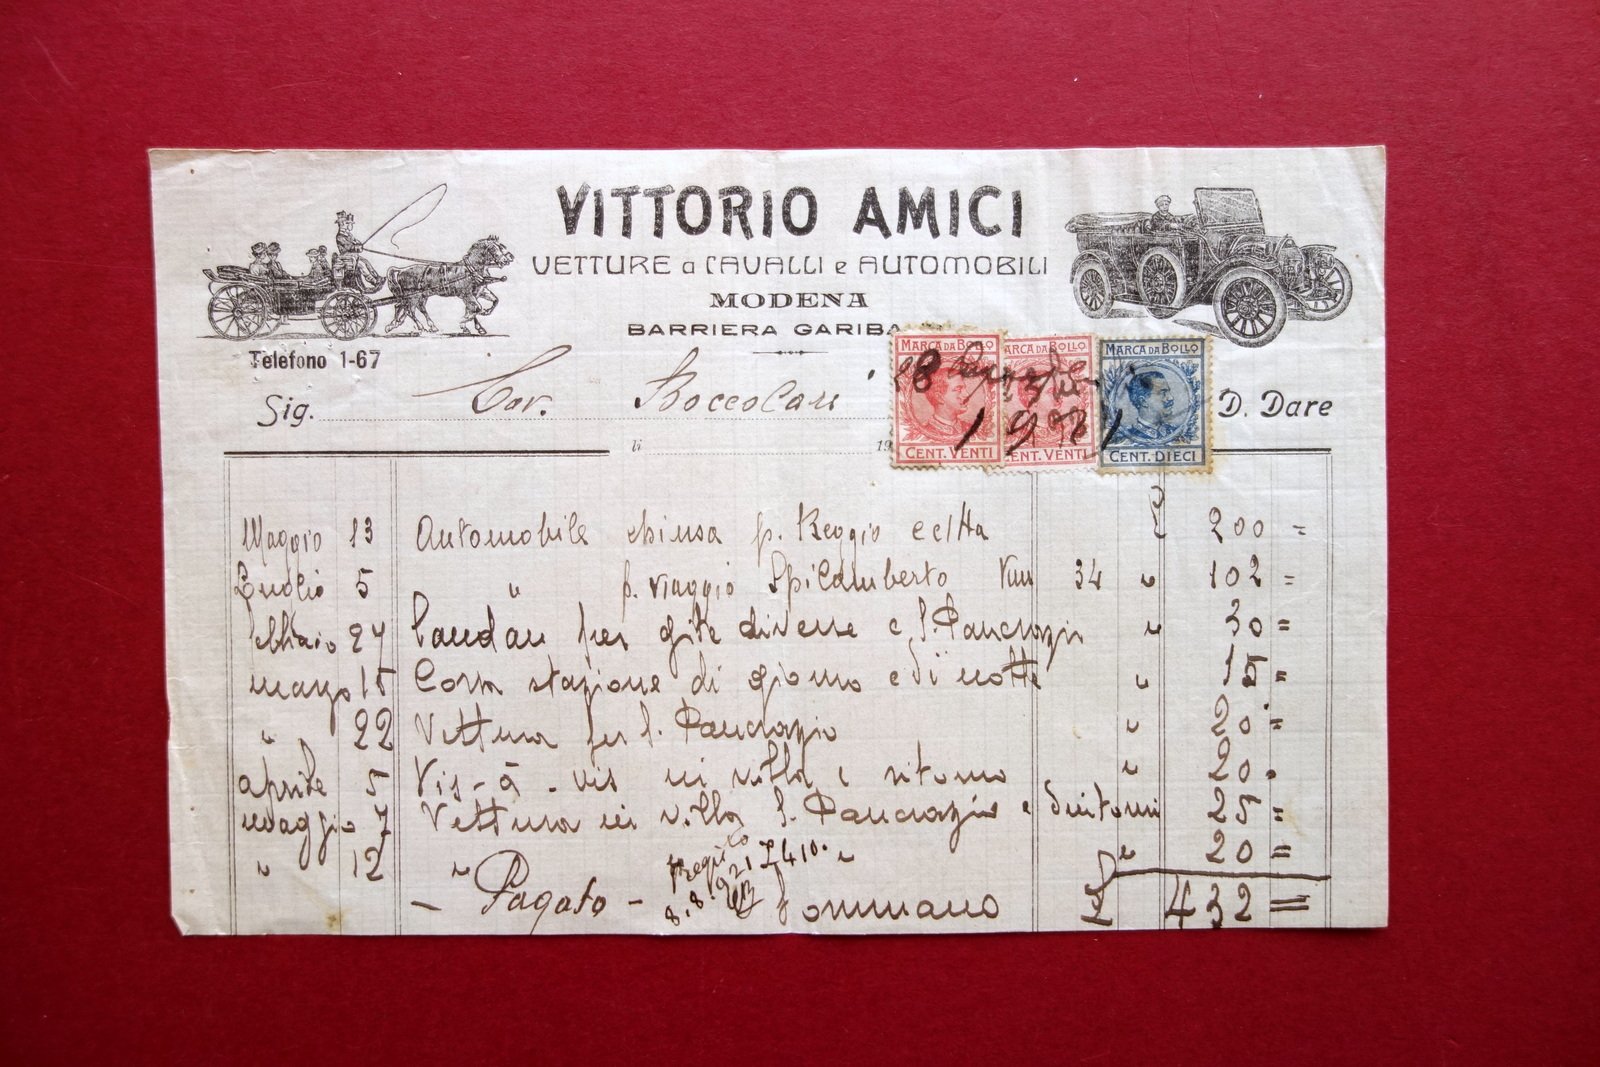 VITTORIO AMICI
VETTURE a CAVALLI e AUTOMOBILI
MODENA
BARRIERA GARIBA
Telefono 1-67
Sig. Cav. Boccolari D. Dare
li 19
MARCA DA BOLLO MARCA DA BOLLO MARCA DA BOLLO
8 1921
CENT. VENTI CENT. VENTI CENT. DIECI
Maggio 13 Automobile chiusa p. Reggio £ 200 =
Luglio 5 " p. viaggio Spilamberto Km 34 " 102 =
febbraio 27 Landau per gite diverse e S. Pancrazio " 30 =
marzo 15 Corsa stazione di giorno e di notte " 15 =
" 22 Vettura per S. Pancrazio " 20 =
aprile 5 Vis-à-vis in villa e ritorno " 20 =
maggio 7 Vettura in villa S. Pancrazio e 25 =
" 12 " " " 20 =
- Pagato - Sommano £ 432 =
8.8.921 £ 410.